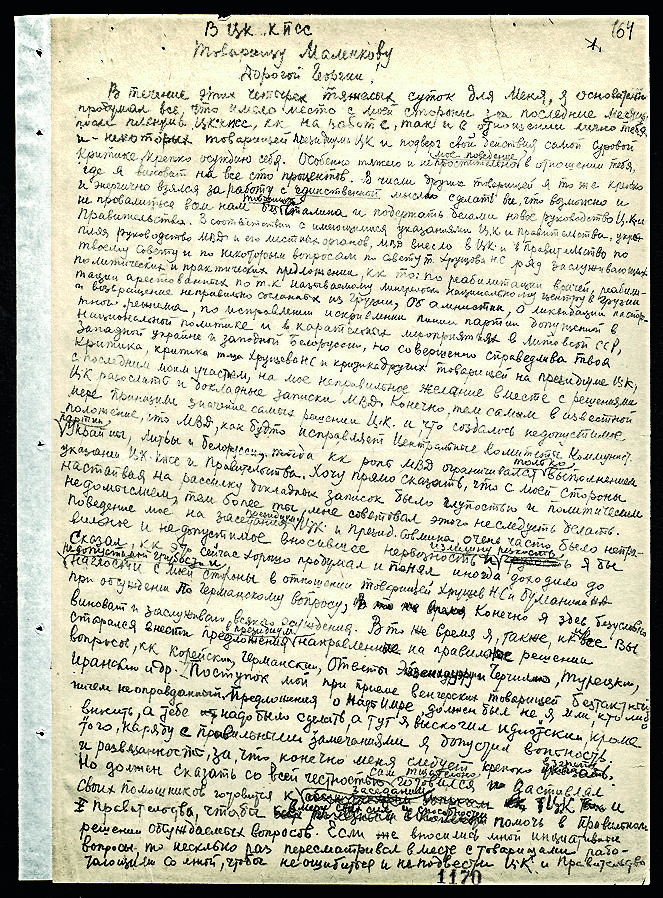 164
В ЦК КПСС
Товарищу Маленкову
Дорогой Георгий!
В течение этих четырех тяжелых суток для меня, я основательно
продумал все, что имело место с моей стороны за последние месяцы
после пленума ЦК КПСС, кк на работе, так и в отношении лично тебя
и – некоторых товарищей президиума ЦК и подверг свои действия самой суровой
критике, крепко осуждаю себя. Особенно тяжело и непростительно мое поведение в отношении тебя,
где я виноват на все сто процентов. В числе других товарищей я тоже крепко
и энергично взялся за работу с единственной мыслью сделать все, что возможно и
не провалиться всем нам без товарища Сталина и подержать делами новое руководство ЦК и
Правительства. В соответствии с имеющимися указаниями ЦК и правительства, укре-
пляя руководство МВД и его местных органов, МВД внесло в ЦК и в Правительство по
твоему совету и по некоторым вопросам по совету т. Хрущева НС ряд заслуживающих
политических и практических предложений, кк то: по реабилитации врачей, реабили-
тации арестованных по т.к называемому мингрельско национальному центру в Грузии
и возвращение неправильно сосланных из Грузии, Об амнистии, О ликвидации паспор-
тного режима, по исправлении искривлении линии партии допущенной в
национальной политике и в карательных мероприятиях в Литовской ССР,
Западной украине и западной белоруссии, но совершенно справедлива твоя
критика, критика т-ща Хрущева НС и критика других товарищей на президиуме ЦК,
с последним моим участием, на мое неправильное желание вместе с решениями
ЦК разослать и докладные записки МВД. Конечно, тем самым в известной
мере принизили значение самих решении ЦК и, что создалось недопустимое
положение, что МВД, как будто исправляет Центральные Комитеты Коммунист.
партии Украины, Литвы и белоруссии, тогда кк роль МВД ограничивалась только выполнением
указании ЦК КПСС и Правительства. Хочу прямо сказать, что с моей стороны
настаивая на рассылку докладных записок было глупостью и политическим
недомыслием, тем более ты мне советовал этого не следует делать.
Поведение мое на заседаниях президиума ЦК и Презид. Совмина, очень часто было непра-
вильное и недопустимое вносившее нервозность и излишнюю резкость я бы
сказал, кк это сейчас хорошо продумал и понял иногда доходило до
недопустимой грубости и наглости с моей стороны в отношении товарищей Хрущева НС и Булганина НА
при обсуждении По Германскому вопросу, Конечно я здесь безусловно
виноват и заслуживаю всякого осуждения. В то же время я, также, кк и все Вы
старался внести предложения в президиум направленные на правильное решения
вопросы, кк Корейский, Германский, Ответы Эйзенхауеру и Черчилю, Турецкий,
Иранский и др. Поступок мой при приеме венгерских товарищей бестактный
ничем не оправданный. Предложения о Надь Имре, должен был не я или кто либо
вносить, а тебе надо было сделать, а тут я выскочил идиотски, кроме
того, наряду с правильными замечаниями я допустил вольность
и развязанность, за, что конечно меня следует крепко взгреть.
Но должен сказать со всей честностью сам тщательно готовился и заставлял
своих помощников готовится к заседаниям ЦК и
Правительства, чтобы в меру своих сил и способности помочь в правильном
решении обсуждаемых вопросов. Если же вносились мной инициативные
вопросы, то несколько раз пересматривал вместе с товарищами рабо-
тающими со мной, чтобы не ошибиться и не подвести ЦК и Правительство
1170